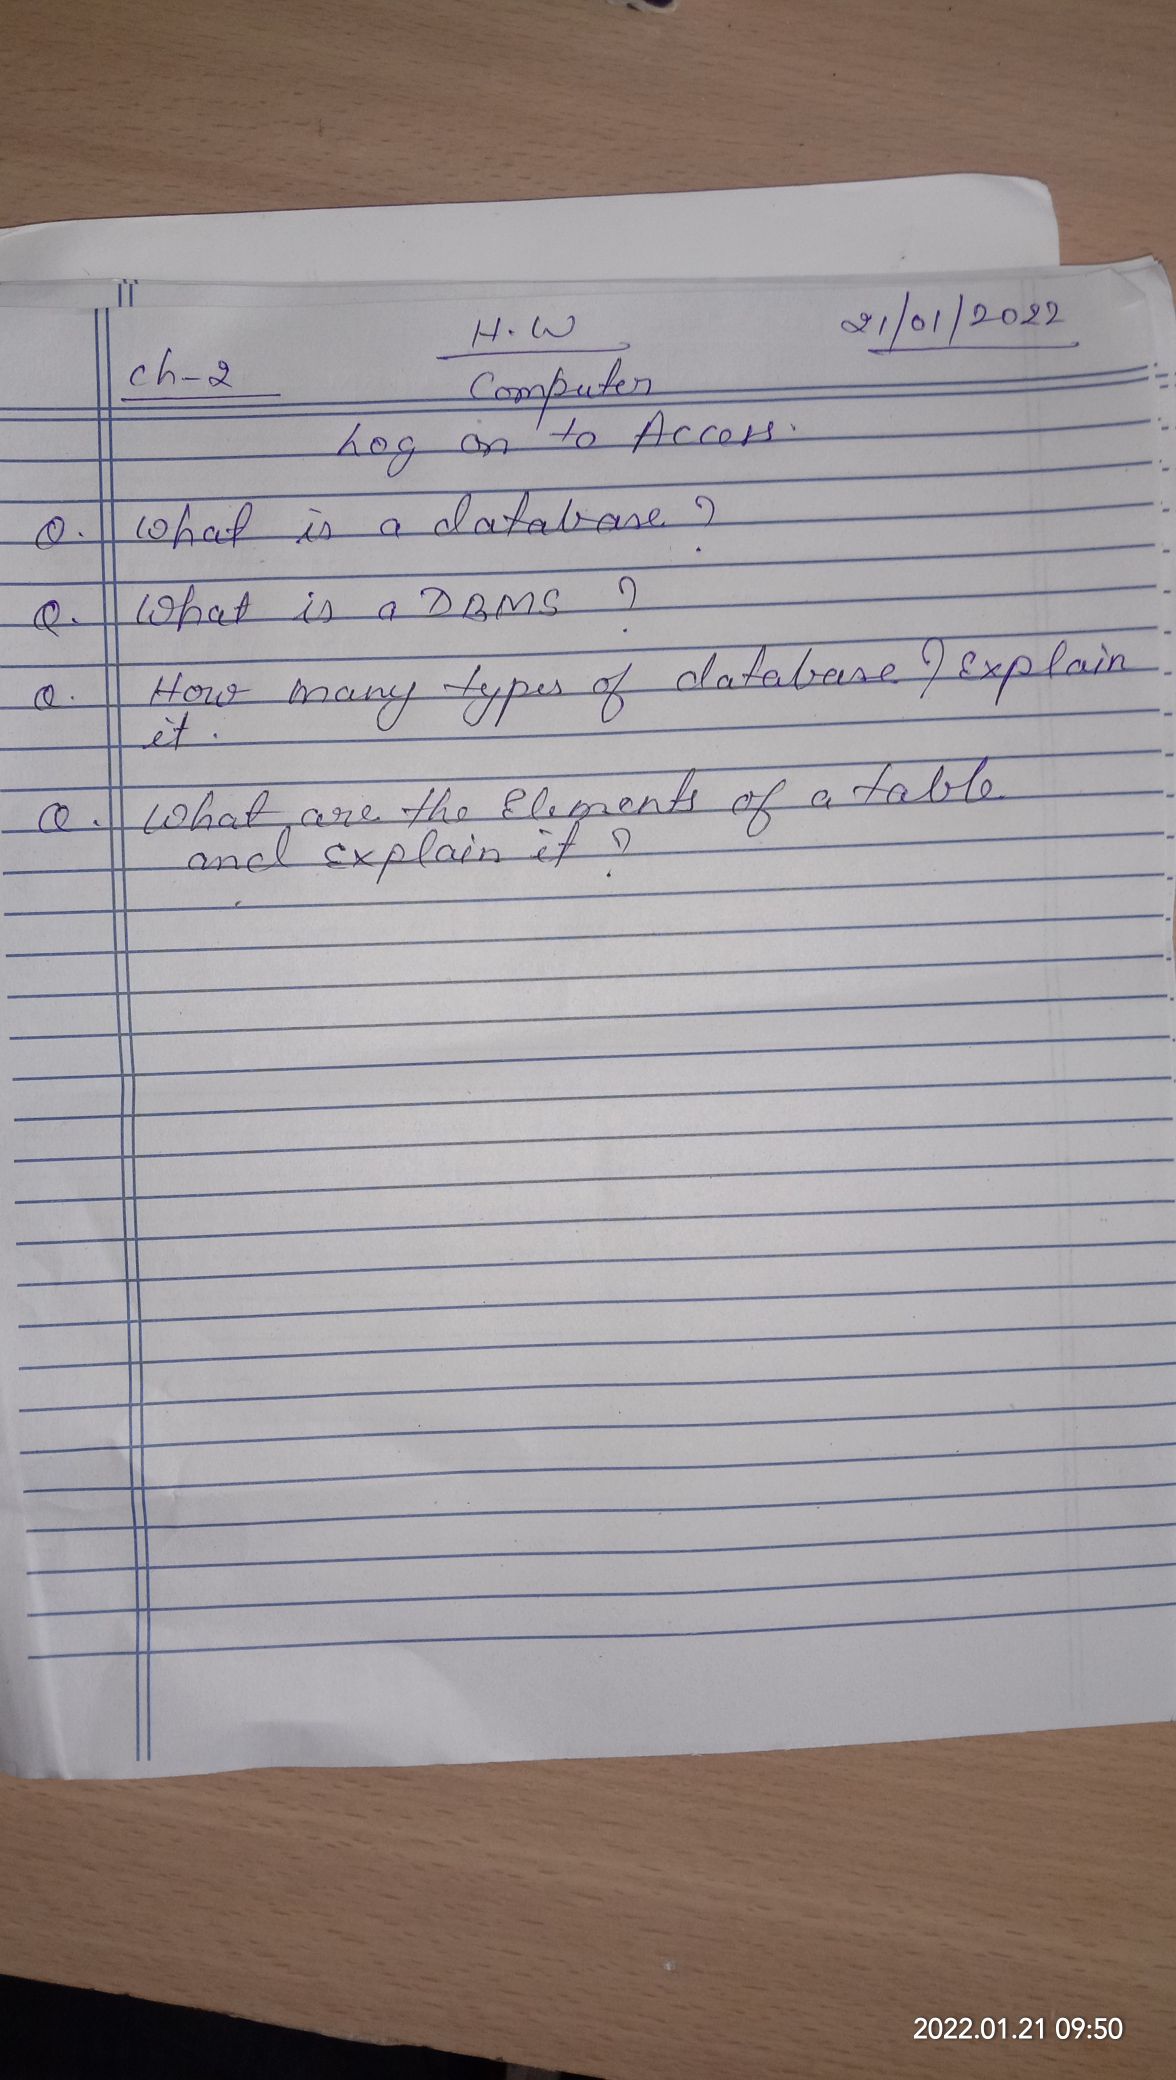 H.W
21/01/2022
Ch-2
Computer
Log on to Access.
Q. What is a database?
Q. What is a DBMS?
Q. How many types of database? Explain
it.
Q. What are the Elements of a table
and explain it?
2022.01.21 09:50